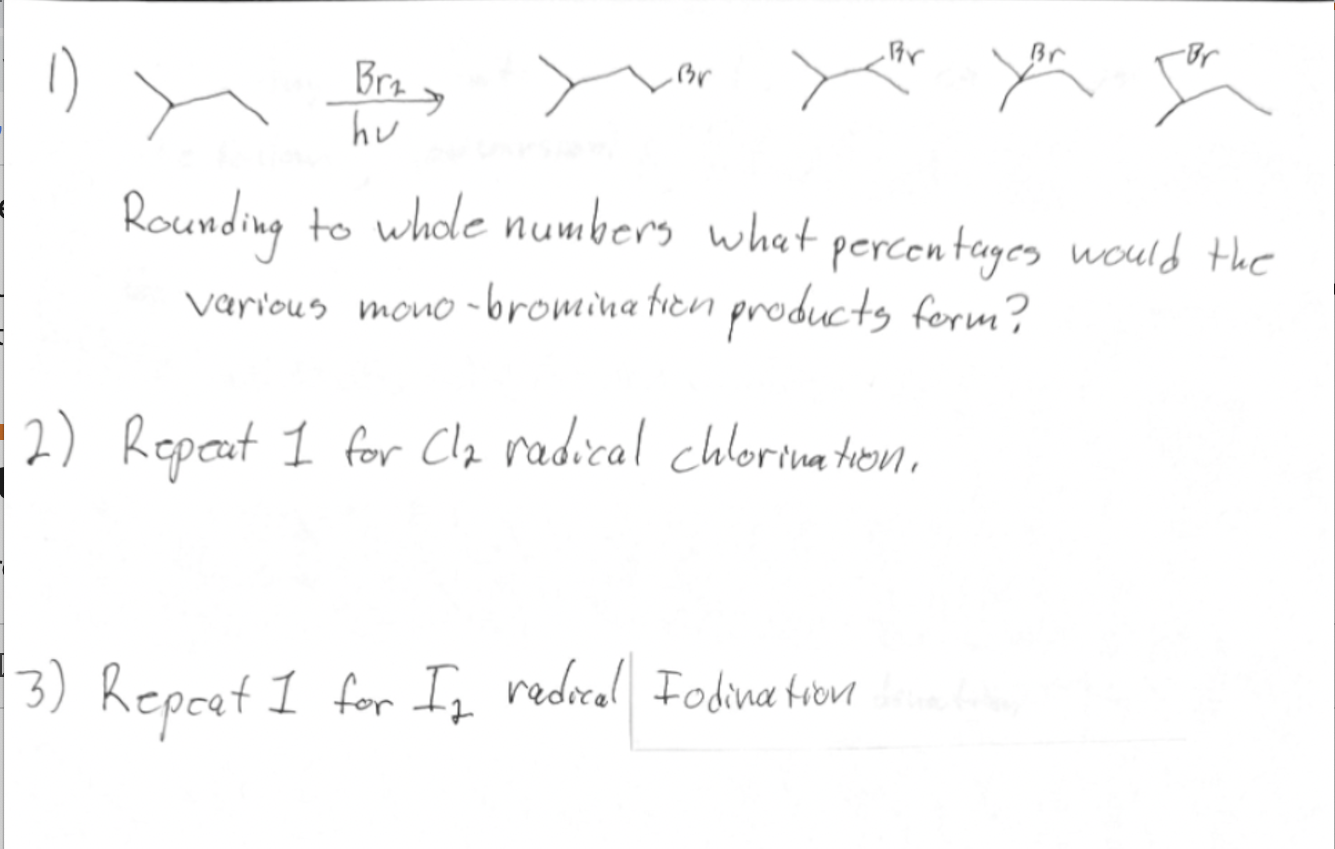 1) Br2 hν Br Br Br Br
Rounding to whole numbers what percentages would the
various mono-bromination products form?
2) Repeat 1 for Cl2 radical chlorination.
3) Repeat 1 for I2 radical Iodination